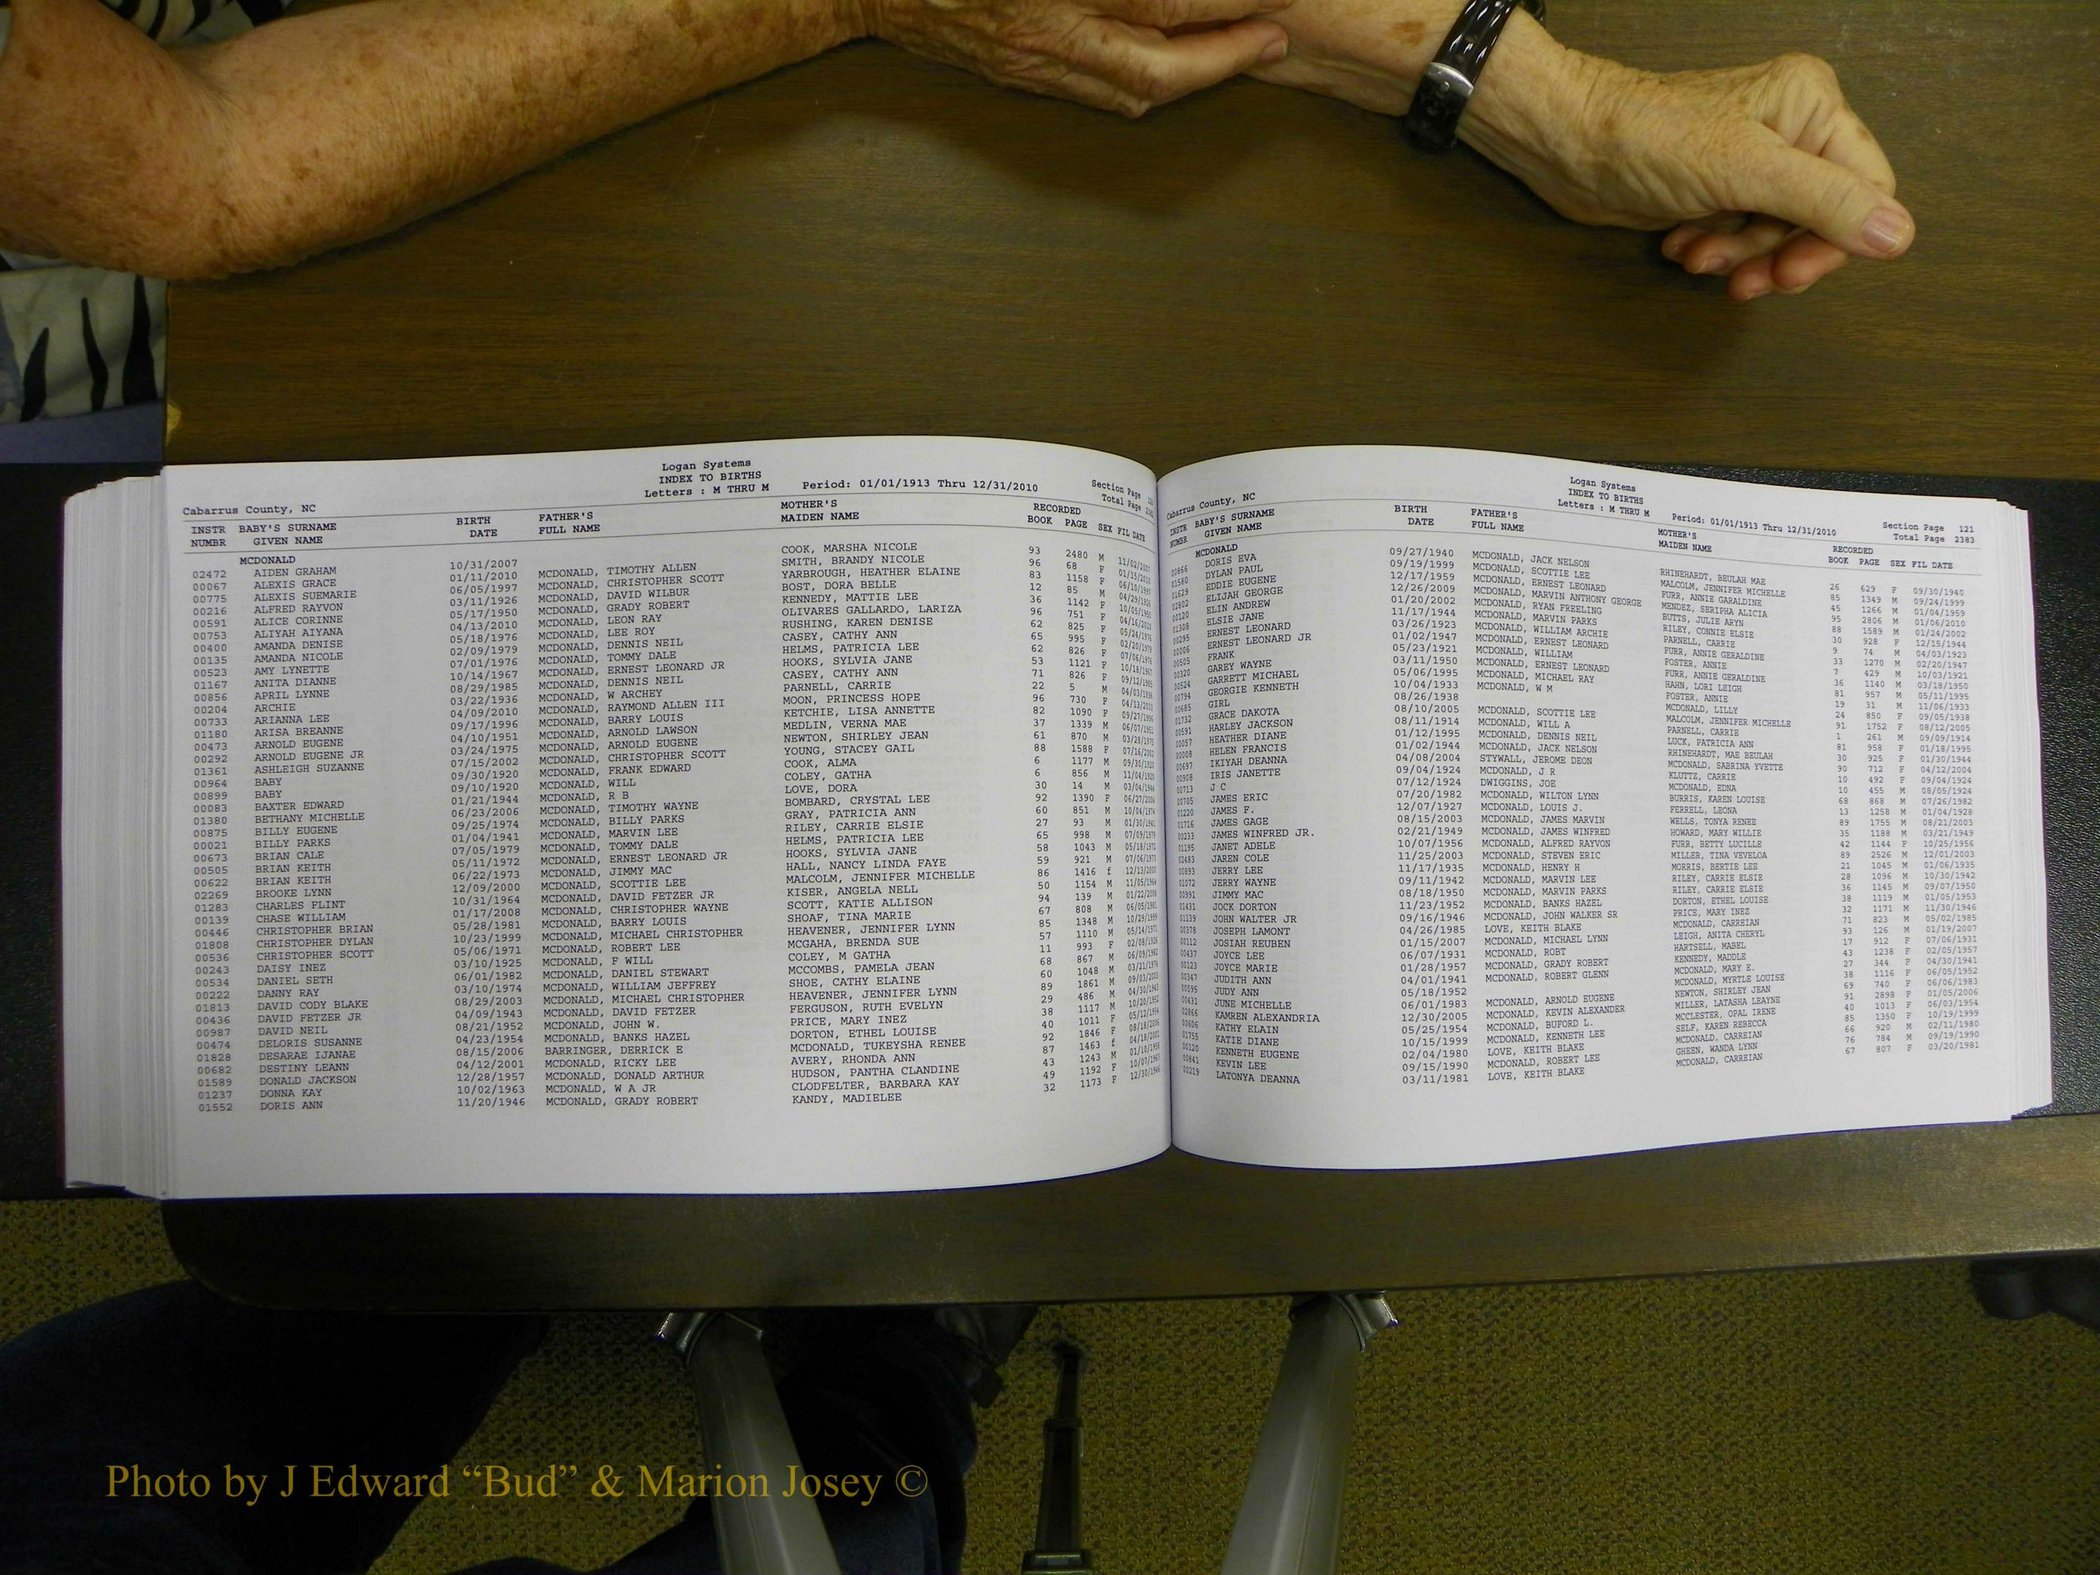 Logan Systems
INDEX TO BIRTHS
Letters : M THRU M Period: 01/01/1913 Thru 12/31/2010
Section Page
Total Page
Cabarrus County, NC
INSTR BABY'S SURNAME BIRTH FATHER'S MOTHER'S RECORDED
NUMBR GIVEN NAME DATE FULL NAME MAIDEN NAME BOOK PAGE SEX FIL DATE
MCDONALD
02472 AIDEN GRAHAM 10/31/2007 COOK, MARSHA NICOLE 93 2480 M 11/02/2007
00067 ALEXIS GRACE 01/11/2010 MCDONALD, TIMOTHY ALLEN SMITH, BRANDY NICOLE 96 68 F 01/15/2010
00775 ALEXIS SUEMARIE 06/05/1997 MCDONALD, CHRISTOPHER SCOTT YARBROUGH, HEATHER ELAINE 83 1158 F 06/10/1997
00216 ALFRED RAYVON 03/11/1926 MCDONALD, DAVID WILBUR BOST, DORA BELLE 12 85 M 04/29/1926
00591 ALICE CORINNE 05/17/1950 MCDONALD, GRADY ROBERT KENNEDY, MATTIE LEE 36 1142 F 10/05/1950
00753 ALIYAH AIYANA 04/13/2010 MCDONALD, LEON RAY OLIVARES GALLARDO, LARIZA 96 751 F 04/16/2010
00400 AMANDA DENISE 05/18/1976 MCDONALD, LEE ROY RUSHING, KAREN DENISE 62 825 F 05/24/1976
00135 AMANDA NICOLE 02/09/1979 MCDONALD, DENNIS NEIL CASEY, CATHY ANN 65 995 F 02/20/1979
00523 AMY LYNETTE 07/01/1976 MCDONALD, TOMMY DALE HELMS, PATRICIA LEE 62 826 F 07/06/1976
01167 ANITA DIANNE 10/14/1967 MCDONALD, ERNEST LEONARD JR HOOKS, SYLVIA JANE 53 1121 F 10/18/1967
00856 APRIL LYNNE 08/29/1985 MCDONALD, DENNIS NEIL CASEY, CATHY ANN 71 826 F 09/12/1985
00204 ARCHIE 03/22/1936 MCDONALD, W ARCHEY PARNELL, CARRIE 22 5 M 04/03/1936
00733 ARIANNA LEE 04/09/2010 MCDONALD, RAYMOND ALLEN III MOON, PRINCESS HOPE 96 730 F 04/13/2010
01180 ARISA BREANNE 09/17/1996 MCDONALD, BARRY LOUIS KETCHIE, LISA ANNETTE 82 1090 F 09/27/1996
00473 ARNOLD EUGENE 04/10/1951 MCDONALD, ARNOLD LAWSON MEDLIN, VERNA MAE 37 1339 M 06/07/1951
00292 ARNOLD EUGENE JR 03/24/1975 MCDONALD, ARNOLD EUGENE NEWTON, SHIRLEY JEAN 61 870 M 03/28/1975
01361 ASHLEIGH SUZANNE 07/15/2002 MCDONALD, CHRISTOPHER SCOTT YOUNG, STACEY GAIL 88 1588 F 07/16/2002
00964 BABY 09/30/1920 MCDONALD, FRANK EDWARD COOK, ALMA 6 1177 M 09/30/1920
00899 BABY 09/10/1920 MCDONALD, WILL COLEY, GATHA 6 856 M 11/04/1920
00083 BAXTER EDWARD 01/21/1944 MCDONALD, R B LOVE, DORA 30 14 M 03/04/1944
01380 BETHANY MICHELLE 06/23/2006 MCDONALD, TIMOTHY WAYNE BOMBARD, CRYSTAL LEE 92 1390 F 06/27/2006
00875 BILLY EUGENE 09/25/1974 MCDONALD, BILLY PARKS GRAY, PATRICIA ANN 60 851 M 10/04/1974
00021 BILLY PARKS 01/04/1941 MCDONALD, MARVIN LEE RILEY, CARRIE ELSIE 27 93 M 01/30/1941
00673 BRIAN CALE 07/05/1979 MCDONALD, TOMMY DALE HELMS, PATRICIA LEE 65 998 M 07/09/1979
00505 BRIAN KEITH 05/11/1972 MCDONALD, ERNEST LEONARD JR HOOKS, SYLVIA JANE 58 1043 M 05/18/1972
00622 BRIAN KEITH 06/22/1973 MCDONALD, JIMMY MAC HALL, NANCY LINDA FAYE 59 921 M 07/06/1973
02269 BROOKE LYNN 12/09/2000 MCDONALD, SCOTTIE LEE MALCOLM, JENNIFER MICHELLE 86 1416 f 12/13/2000
01283 CHARLES FLINT 10/31/1964 MCDONALD, DAVID FETZER JR KISER, ANGELA NELL 50 1154 M 11/05/1964
00139 CHASE WILLIAM 01/17/2008 MCDONALD, CHRISTOPHER WAYNE SCOTT, KATIE ALLISON 94 139 M 01/22/2008
00446 CHRISTOPHER BRIAN 05/28/1981 MCDONALD, BARRY LOUIS SHOAF, TINA MARIE 67 808 M 06/05/1981
01808 CHRISTOPHER DYLAN 10/23/1999 MCDONALD, MICHAEL CHRISTOPHER HEAVENER, JENNIFER LYNN 85 1348 M 10/29/1999
00536 CHRISTOPHER SCOTT 05/06/1971 MCDONALD, ROBERT LEE MCGAHA, BRENDA SUE 57 1110 M 05/14/1971
00243 DAISY INEZ 03/10/1925 MCDONALD, F WILL COLEY, M GATHA 11 993 F 02/08/1926
00534 DANIEL SETH 06/01/1982 MCDONALD, DANIEL STEWART MCCOMBS, PAMELA JEAN 68 867 M 06/09/1982
00222 DANNY RAY 03/10/1974 MCDONALD, WILLIAM JEFFREY SHOE, CATHY ELAINE 60 1048 M 03/21/1974
01813 DAVID CODY BLAKE 08/29/2003 MCDONALD, MICHAEL CHRISTOPHER HEAVENER, JENNIFER LYNN 89 1861 M 09/03/2003
00436 DAVID FETZER JR 04/09/1943 MCDONALD, DAVID FETZER FERGUSON, RUTH EVELYN 29 486 M 04/30/1943
00987 DAVID NEIL 08/21/1952 MCDONALD, JOHN W. PRICE, MARY INEZ 38 1117 M 10/20/1952
00474 DELORIS SUSANNE 04/23/1954 MCDONALD, BANKS HAZEL DORTON, ETHEL LOUISE 40 1011 F 05/12/1954
01828 DESARAE IJANAE 08/15/2006 BARRINGER, DERRICK E MCDONALD, TUKEYSHA RENEE 92 1846 F 08/18/2006
00682 DESTINY LEANN 04/12/2001 MCDONALD, RICKY LEE AVERY, RHONDA ANN 87 1463 f 04/18/2001
01589 DONALD JACKSON 12/28/1957 MCDONALD, DONALD ARTHUR HUDSON, PANTHA CLANDINE 43 1243 M 01/10/1958
01237 DONNA KAY 10/02/1963 MCDONALD, W A JR CLODFELTER, BARBARA KAY 49 1192 F 10/07/1963
01552 DORIS ANN 11/20/1946 MCDONALD, GRADY ROBERT KANDY, MADIELEE 32 1173 F 12/30/1946
Logan Systems
INDEX TO BIRTHS
Letters : M THRU M Period: 01/01/1913 Thru 12/31/2010
Section Page 121
Total Page 2383
Cabarrus County, NC
INSTR BABY'S SURNAME BIRTH FATHER'S MOTHER'S RECORDED
NUMBR GIVEN NAME DATE FULL NAME MAIDEN NAME BOOK PAGE SEX FIL DATE
MCDONALD
00866 DORIS EVA 09/27/1940 MCDONALD, JACK NELSON RHINEHARDT, BEULAH MAE 26 629 F 09/30/1940
01580 DYLAN PAUL 09/19/1999 MCDONALD, SCOTTIE LEE MALCOLM, JENNIFER MICHELLE 85 1349 M 09/24/1999
01629 EDDIE EUGENE 12/17/1959 MCDONALD, ERNEST LEONARD FURR, ANNIE GERALDINE 45 1266 M 01/04/1959
02802 ELIJAH GEORGE 12/26/2009 MCDONALD, MARVIN ANTHONY GEORGE MENDEZ, SERIPHA ALICIA 95 2806 M 01/06/2010
00120 ELIN ANDREW 01/20/2002 MCDONALD, RYAN FREELING BUTTS, JULIE ARYN 88 1589 M 01/24/2002
01308 ELSIE JANE 11/17/1944 MCDONALD, MARVIN PARKS RILEY, CONNIE ELSIE 30 928 F 12/15/1944
00295 ERNEST LEONARD 03/26/1923 MCDONALD, WILLIAM ARCHIE PARNELL, CARRIE 9 74 M 04/03/1923
00006 ERNEST LEONARD JR 01/02/1947 MCDONALD, ERNEST LEONARD FURR, ANNIE GERALDINE 33 1270 M 02/20/1947
00505 FRANK 05/23/1921 MCDONALD, WILLIAM FOSTER, ANNIE 7 429 M 10/03/1921
00320 GAREY WAYNE 03/11/1950 MCDONALD, ERNEST LEONARD FURR, ANNIE GERALDINE 36 1140 M 03/18/1950
00524 GARRETT MICHAEL 05/06/1995 MCDONALD, MICHAEL RAY HAHN, LORI LEIGH 81 957 M 05/11/1995
00794 GEORGIE KENNETH 10/04/1933 MCDONALD, W M FOSTER, ANNIE 19 31 M 11/06/1933
00685 GIRL 08/26/1938 MCDONALD, LILLY 24 850 F 09/05/1938
01732 GRACE DAKOTA 08/10/2005 MCDONALD, SCOTTIE LEE MALCOLM, JENNIFER MICHELLE 91 1752 F 08/12/2005
00591 HARLEY JACKSON 08/11/1914 MCDONALD, WILL A PARNELL, CARRIE 1 261 M 09/09/1914
00057 HEATHER DIANE 01/12/1995 MCDONALD, DENNIS NEIL LUCK, PATRICIA ANN 81 958 F 01/18/1995
00008 HELEN FRANCIS 01/02/1944 MCDONALD, JACK NELSON RHINEHARDT, MAE BEULAH 30 925 F 01/30/1944
00697 IKIYAH DEANNA 04/08/2004 STYWALL, JEROME DEON MCDONALD, SABRINA YVETTE 90 712 F 04/12/2004
00908 IRIS JANETTE 09/04/1924 MCDONALD, J R KLUTTZ, CARRIE 10 492 F 09/04/1924
00713 J C 07/12/1924 DWIGGINS, JOE MCDONALD, EDNA 10 455 M 08/05/1924
00705 JAMES ERIC 07/20/1982 MCDONALD, WILTON LYNN BURRIS, KAREN LOUISE 68 868 M 07/26/1982
01220 JAMES F. 12/07/1927 MCDONALD, LOUIS J. FERRELL, LEONA 13 1258 M 01/04/1928
01716 JAMES GAGE 08/15/2003 MCDONALD, JAMES MARVIN WELLS, TONYA RENEE 89 1755 M 08/21/2003
00233 JAMES WINFRED JR. 02/21/1949 MCDONALD, JAMES WINFRED HOWARD, MARY WILLIE 35 1188 M 03/21/1949
01195 JANET ADELE 10/07/1956 MCDONALD, ALFRED RAYVON FURR, BETTY LUCILLE 42 1144 F 10/25/1956
02483 JAREN COLE 11/25/2003 MCDONALD, STEVEN ERIC MILLER, TINA VEVELOA 89 2526 M 12/01/2003
00893 JERRY LEE 11/17/1935 MCDONALD, HENRY H MORRIS, BERTIE LEE 21 1045 M 01/06/1935
01072 JERRY WAYNE 09/11/1942 MCDONALD, MARVIN LEE RILEY, CARRIE ELSIE 28 1096 M 10/30/1942
00991 JIMMY MAC 08/18/1950 MCDONALD, MARVIN PARKS RILEY, CARRIE ELSIE 36 1145 M 09/07/1950
01431 JOCK DORTON 11/23/1952 MCDONALD, BANKS HAZEL DORTON, ETHEL LOUISE 38 1119 M 01/05/1953
01139 JOHN WALTER JR 09/16/1946 MCDONALD, JOHN WALKER SR PRICE, MARY INEZ 32 1171 M 11/30/1946
00378 JOSEPH LAMONT 04/26/1985 LOVE, KEITH BLAKE MCDONALD, CARREIAN 71 823 M 05/02/1985
00112 JOSIAH REUBEN 01/15/2007 MCDONALD, MICHAEL LYNN LEIGH, ANITA CHERYL 93 126 M 01/19/2007
00437 JOYCE LEE 06/07/1931 MCDONALD, ROBT HARTSELL, MABEL 17 912 F 07/06/1931
00123 JOYCE MARIE 01/28/1957 MCDONALD, GRADY ROBERT KENNEDY, MADDLE 43 1238 F 02/05/1957
00347 JUDITH ANN 04/01/1941 MCDONALD, ROBERT GLENN MCDONALD, MARY E. 27 344 F 04/30/1941
00595 JUDY ANN 05/18/1952 MCDONALD, MYRTLE LOUISE 38 1116 F 06/05/1952
00431 JUNE MICHELLE 06/01/1983 MCDONALD, ARNOLD EUGENE NEWTON, SHIRLEY JEAN 69 740 F 06/06/1983
02866 KAMREN ALEXANDRIA 12/30/2005 MCDONALD, KEVIN ALEXANDER MILLER, LATASHA LEAYNE 91 2898 F 01/05/2006
00606 KATHY ELAIN 05/25/1954 MCDONALD, BUFORD L. MCCLESTER, OPAL IRENE 40 1013 F 06/03/1954
01755 KATIE DIANE 10/15/1999 MCDONALD, KENNETH LEE SELF, KAREN REBECCA 85 1350 F 10/19/1999
00120 KENNETH EUGENE 02/04/1980 LOVE, KEITH BLAKE MCDONALD, CARREIAN 66 920 M 02/11/1980
00841 KEVIN LEE 09/15/1990 MCDONALD, ROBERT LEE GHEEN, WANDA LYNN 76 784 M 09/19/1990
00219 LATONYA DEANNA 03/11/1981 LOVE, KEITH BLAKE MCDONALD, CARREIAN 67 807 F 03/20/1981
Photo by J Edward “Bud” & Marion Josey ©